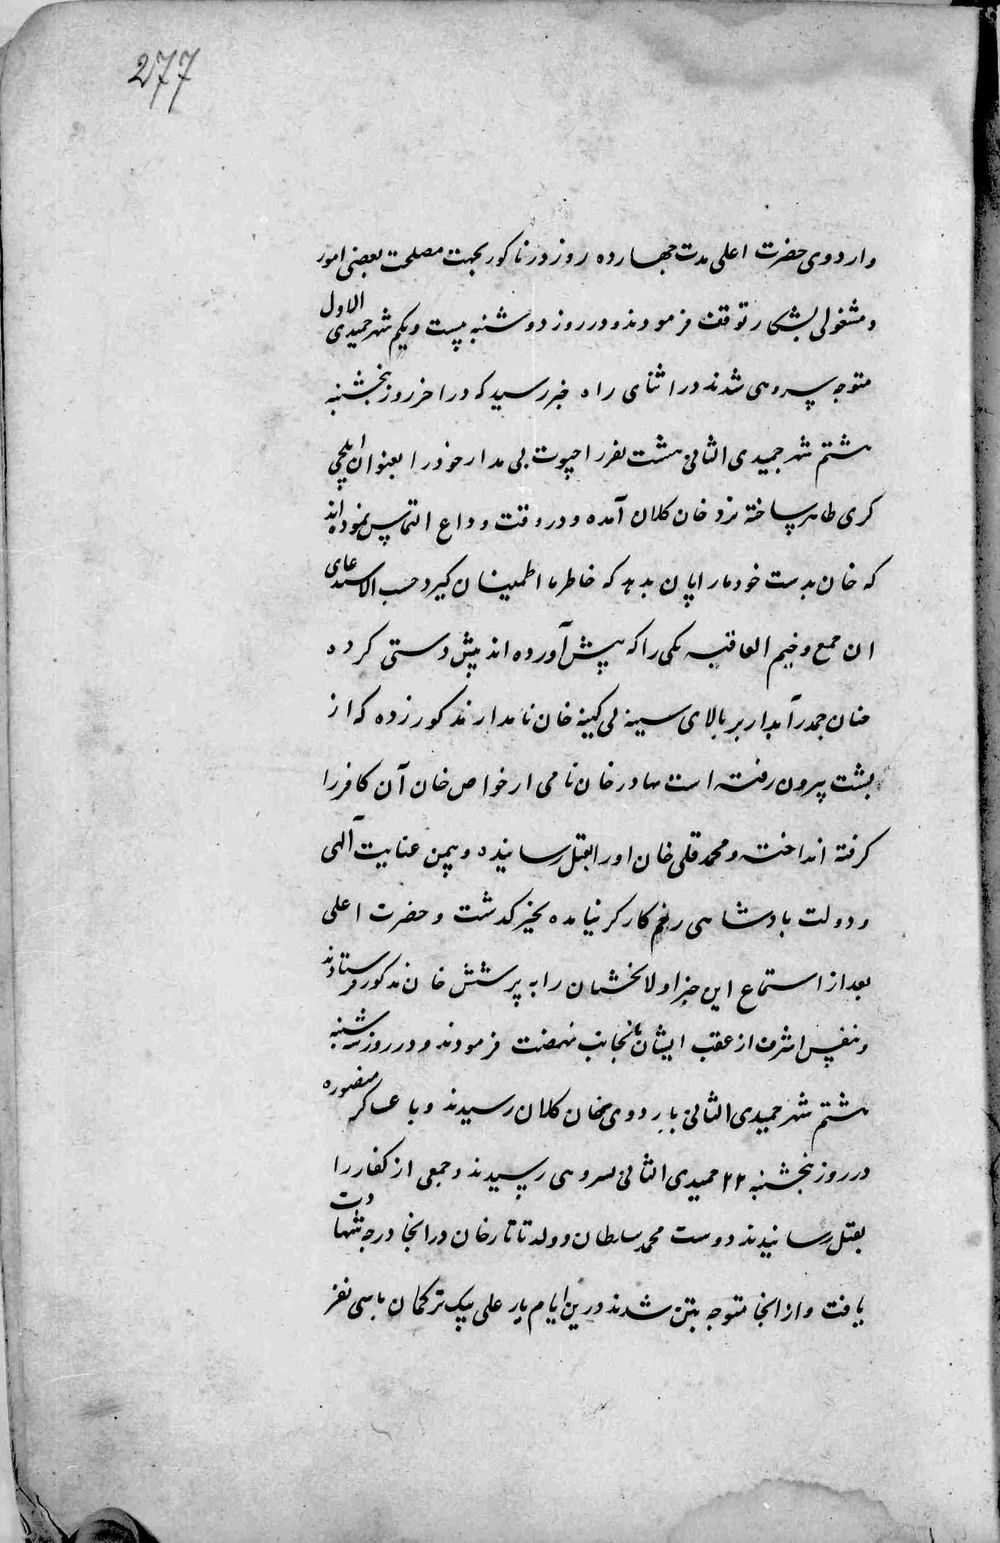 277
واردوی حضرت اعلی مدت چهارده روز در ناکور بجهت مصلحت بعضی امور
و مشغولی بشکار توقف فرمودند و در روز دوشنبه بیست و یکم شهر جمیدی الاول
متوجه سروهی شدند در اثنای راه خبر رسید که در اخر روز پنجشنبه
هشتم شهر جمیدی الثانی هشت نفر راجپوت بی مدار خود را بعنوان ایلچی
کری ظاهر ساخته نزد خان کلان آمده و در وقت وداع التماس نموده اند
که خان بدست خود ما را پان بدهد که خاطر ما اطمینان کیرد حسب الاستدعای
ان جمع وخیم العاقبه یکی را که پیش آورده اند پیش دستی کرده
چنان جمدر آبدار بر بالای سینه بی کینه خان نامدار مذکور زده که از
پشت بیرون رفته است بهادر خان نامی از خواص خان آن کافر را
کرفته انداخته و محمد قلی خان او را بقتل رسانیده و بیمن عنایت آلهی
و دولت بادشاهی زخم کارکر نیامده بخیر کذشت و حضرت اعلی
بعد از استماع این خبر اولا بخشیان را به پرسش خان مذکور فرستادند
و بنفس اشرف از عقب ایشان بانجانب نهضت فرمودند و در روز سه شنبه
هشتم شهر جمیدی الثانی باردوی خان کلان رسیدند و با عساکر منصوره
در روز پنجشنبه ۲۲ جمیدی الثانی سروهی رسیدند و جمعی از کفار را
بقتل رسانیدند دوست محمد سلطان و ولد تاتار خان در انجا درجه شهادت
یافت و از انجا متوجه پتن شدند درین ایام یار علی بیک ترکمان با سی نفر